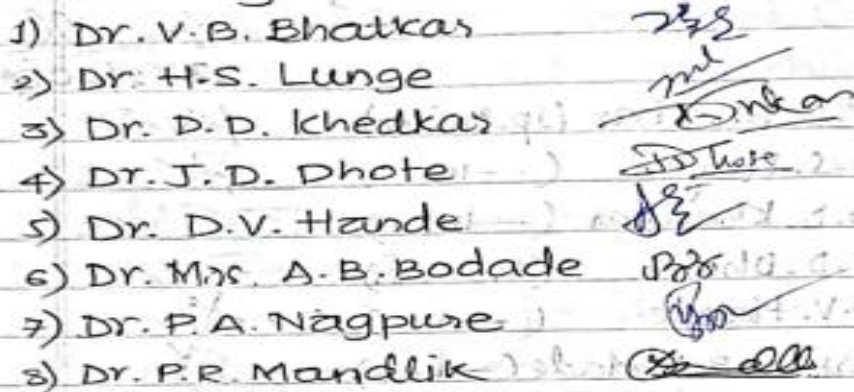 1) Dr. V.B. Bhatkar
2) Dr. H.S. Lunge
3) Dr. D.D. Khedkar
4) Dr. J.D. Dhote JDDhote
5) Dr. D.V. Hande
6) Dr. Mrs. A.B. Bodade
7) Dr. P.A. Nagpure
8) Dr. P.R. Mandlik